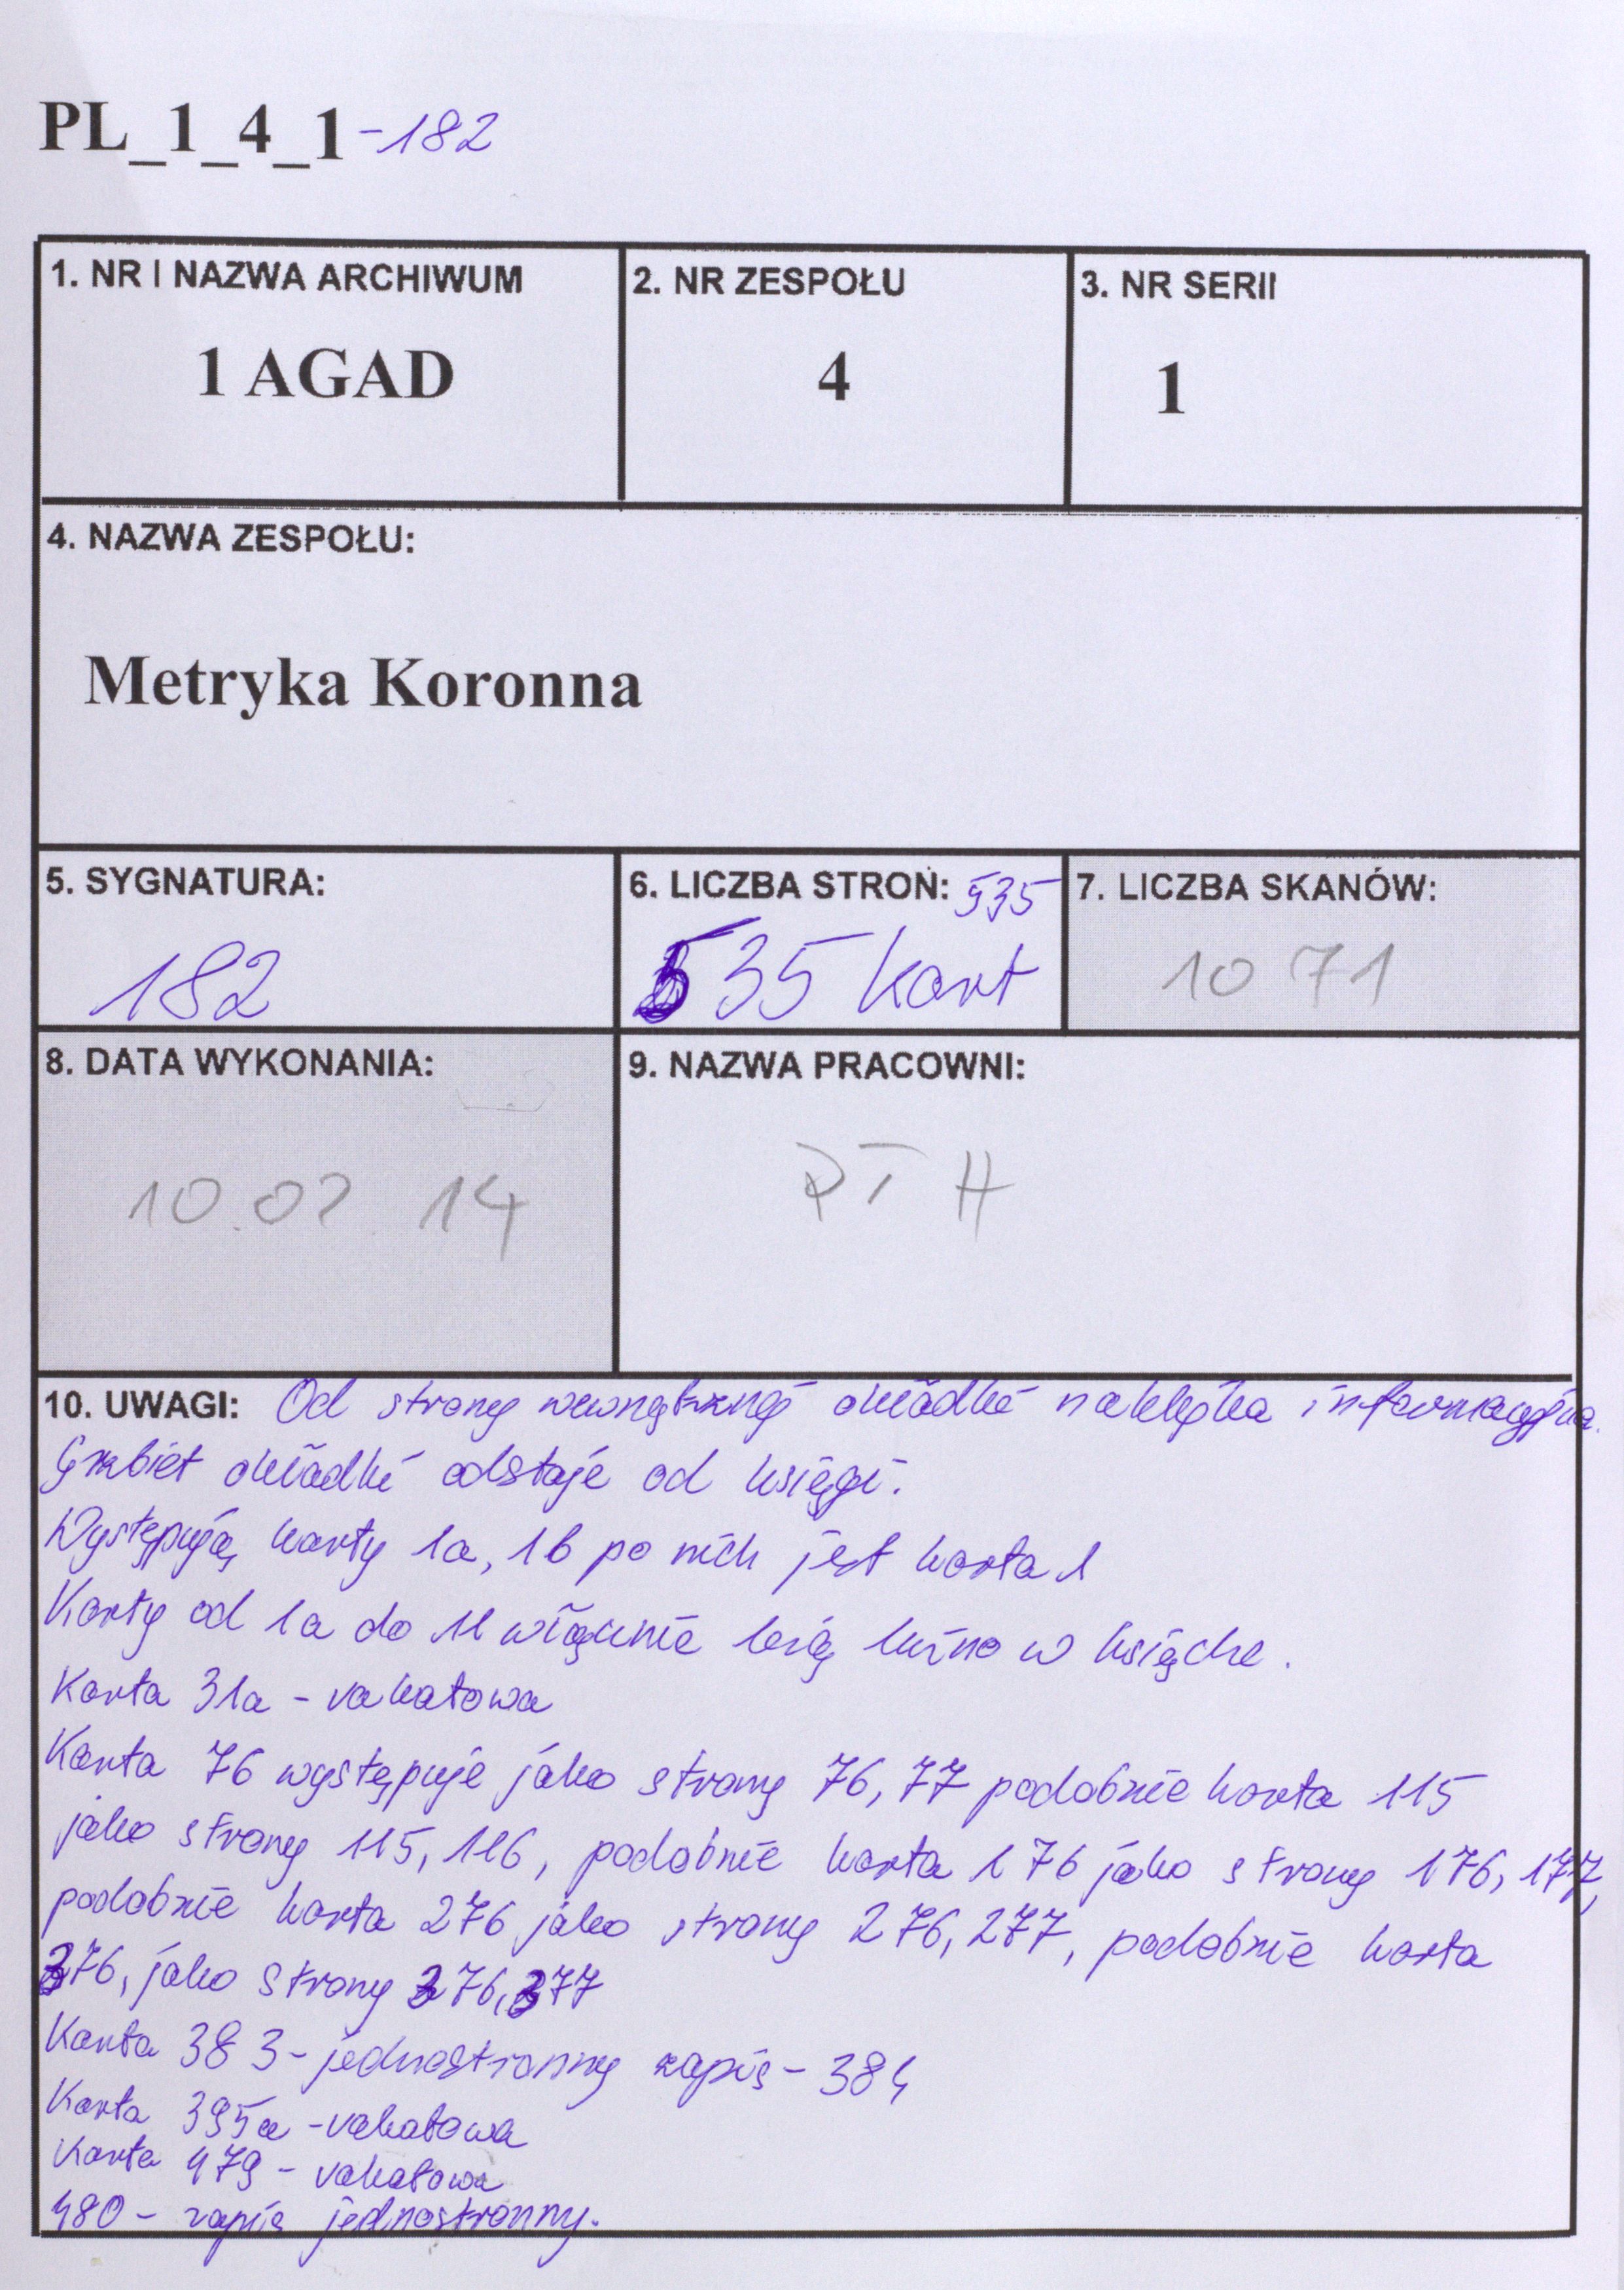 PL_1_4_1-182
1. NR I NAZWA ARCHIWUM
1 AGAD
2. NR ZESPOŁU
4
3. NR SERII
1
4. NAZWA ZESPOŁU:
Metryka Koronna
5. SYGNATURA:
182
6. LICZBA STRON: 535
535 kart
7. LICZBA SKANÓW:
1071
8. DATA WYKONANIA:
10.02 14
9. NAZWA PRACOWNI:
PTH
10. UWAGI: Od strony wewnętrznej okładki naklejka informacyjna.
Grzbiet okładki odstaje od księgi.
Występują karty 1a, 1b po nich jest karta 1
Karty od 1a do 11 włącznie leżą luźno w księdze.
Karta 31a - vakatowa
Karta 76 występuje jako strony 76, 77 podobnie karta 115
jako strony 115, 116, podobnie karta 176 jako strony 176, 177,
podobnie karta 276 jako strony 276, 277, podobnie karta
376, jako strony 376, 377
Karta 383 - jednostronny zapis - 384
Karta 395a - vakatowa
Karta 479 - vakatowa
480 - zapis jednostronny.